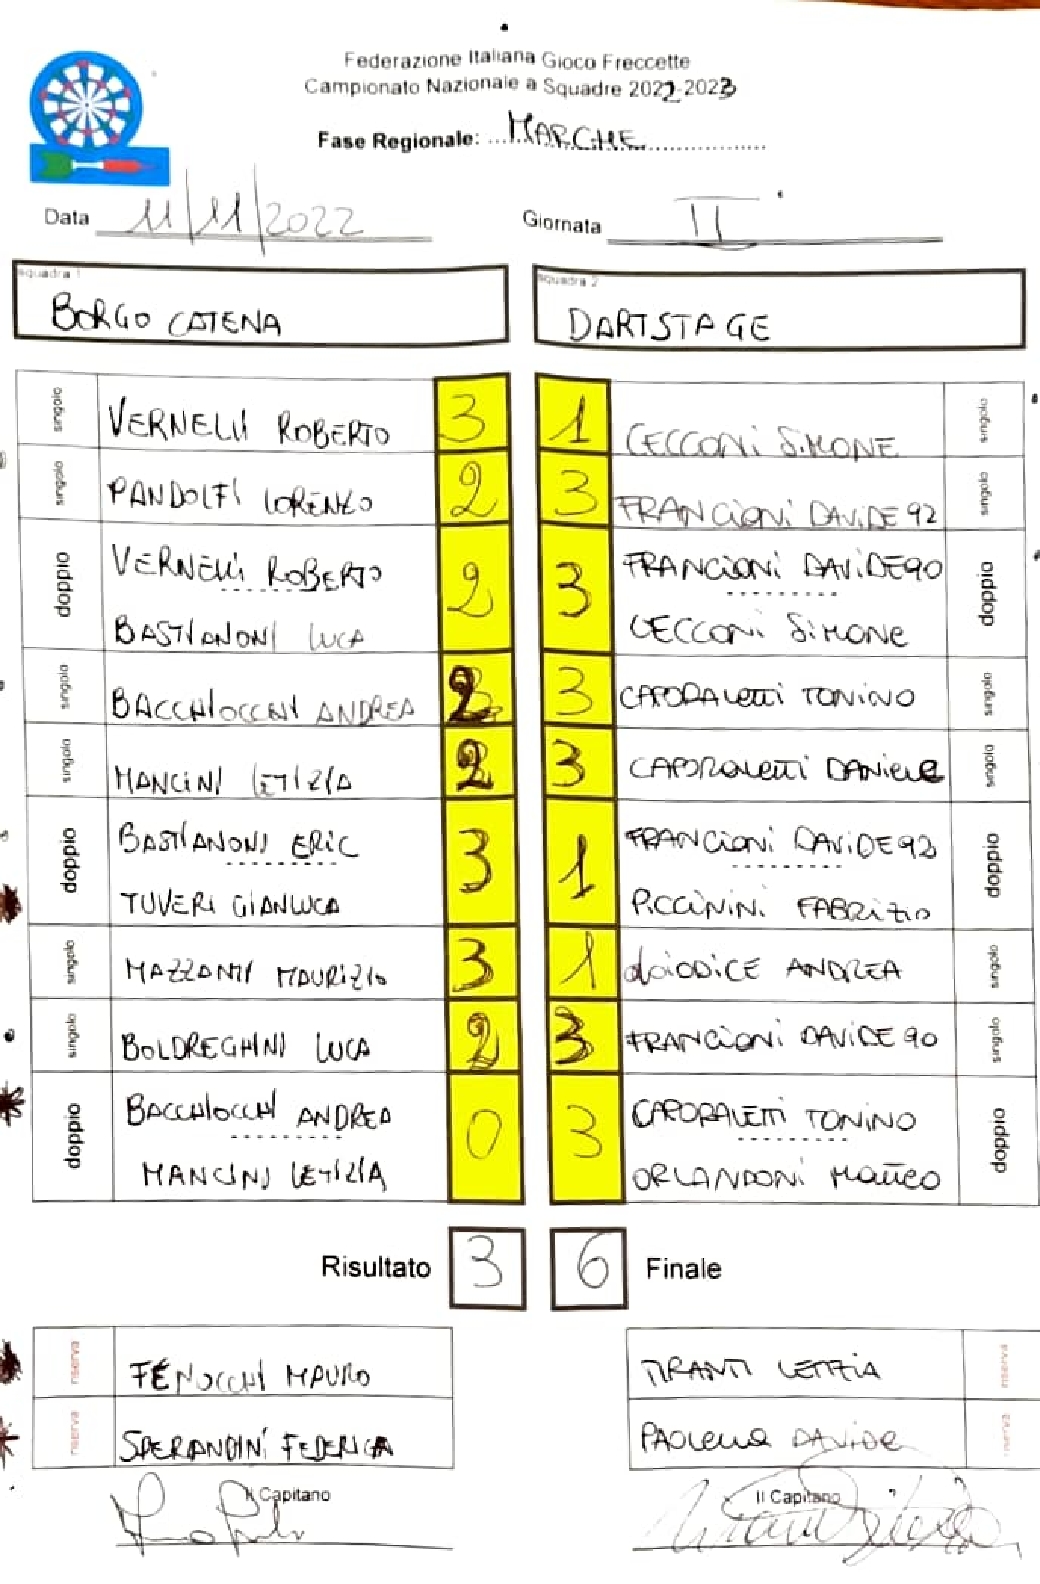 Federazione Italiana Gioco Freccette
Campionato Nazionale a Squadre 2022-2023
Fase Regionale: MARCHE
Data 11/11/2022 Giornata II
squadra 1 squadra 2
BORGO CATENA DARTSTAGE
singolo VERNELLI ROBERTO 3 1 CECCONI SIMONE singolo
singolo PANDOLFI LORENZO 2 3 FRANCIONI DAVIDE 92 singolo
doppio VERNELLI ROBERTO 2 3 FRANCIONI DAVIDE 90 doppio
BASTIANONI LUCA CECCONI SIMONE
singolo BACCHIOCCHI ANDREA 2 3 CAPORALETTI TONINO singolo
singolo MANCINI LETIZIA 2 3 CAPORALETTI DANIELE singolo
doppio BASTIANONI ERIC 3 1 FRANCIONI DAVIDE 92 doppio
TUVERI GIANLUCA PICCININI FABRIZIO
singolo MAZZANTI MAURIZIO 3 1 LOIODICE ANDREA singolo
singolo BOLDREGHINI LUCA 2 3 FRANCIONI DAVIDE 90 singolo
doppio BACCHIOCCHI ANDREA 0 3 CAPORALETTI TONINO doppio
MANCINI LETIZIA ORLANDONI MATTEO
Risultato 3 6 Finale
riserva FENOCCHI MAURO TIRANTI LETIZIA riserva
riserva SPERANDINI FEDERICA PAOLELLA DAVIDE riserva
Il Capitano Il Capitano